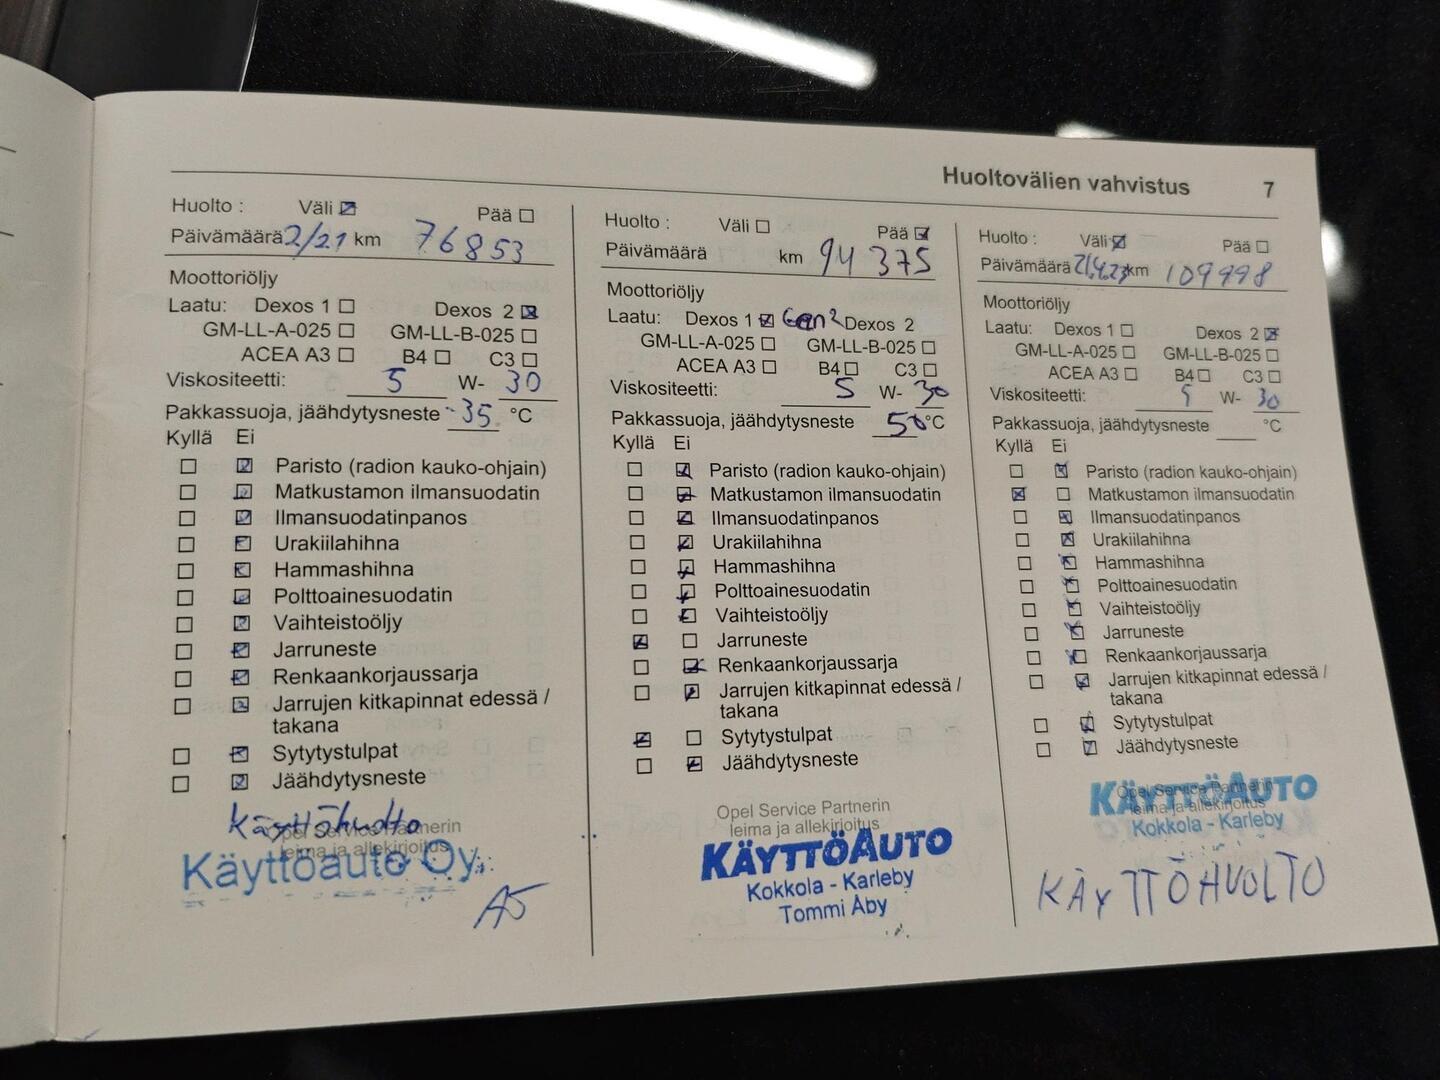 Huoltovälien vahvistus 7
Huolto : Väli Pää
Päivämäärä 2/21 km 76853
Moottoriöljy
Laatu: Dexos 1 Dexos 2
GM-LL-A-025 GM-LL-B-025
ACEA A3 B4 C3
Viskositeetti: 5 W- 30
Pakkassuoja, jäähdytysneste -35 °C
Kyllä Ei
Paristo (radion kauko-ohjain)
Matkustamon ilmansuodatin
Ilmansuodatinpanos
Urakiilahihna
Hammashihna
Polttoainesuodatin
Vaihteistoöljy
Jarruneste
Renkaankorjaussarja
Jarrujen kitkapinnat edessä /
takana
Sytytystulpat
Jäähdytysneste
Käyttöhuolto
Opel Service Partnerin
leima ja allekirjoitus
Käyttöauto Oy
Huolto : Väli Pää
Päivämäärä km 94 375
Moottoriöljy
Laatu: Dexos 1 Gen2 Dexos 2
GM-LL-A-025 GM-LL-B-025
ACEA A3 B4 C3
Viskositeetti: 5 W- 30
Pakkassuoja, jäähdytysneste 50 °C
Kyllä Ei
Paristo (radion kauko-ohjain)
Matkustamon ilmansuodatin
Ilmansuodatinpanos
Urakiilahihna
Hammashihna
Polttoainesuodatin
Vaihteistoöljy
Jarruneste
Renkaankorjaussarja
Jarrujen kitkapinnat edessä /
takana
Sytytystulpat
Jäähdytysneste
Opel Service Partnerin
leima ja allekirjoitus
KÄYTTÖAUTO
Kokkola - Karleby
Tommi Åby
Huolto : Väli Pää
Päivämäärä 21.4.23 km 109998
Moottoriöljy
Laatu: Dexos 1 Dexos 2
GM-LL-A-025 GM-LL-B-025
ACEA A3 B4 C3
Viskositeetti: 5 W- 30
Pakkassuoja, jäähdytysneste °C
Kyllä Ei
Paristo (radion kauko-ohjain)
Matkustamon ilmansuodatin
Ilmansuodatinpanos
Urakiilahihna
Hammashihna
Polttoainesuodatin
Vaihteistoöljy
Jarruneste
Renkaankorjaussarja
Jarrujen kitkapinnat edessä /
takana
Sytytystulpat
Jäähdytysneste
Opel Service Partnerin
leima ja allekirjoitus
KÄYTTÖAUTO
Kokkola - Karleby
KÄYTTÖHUOLTO